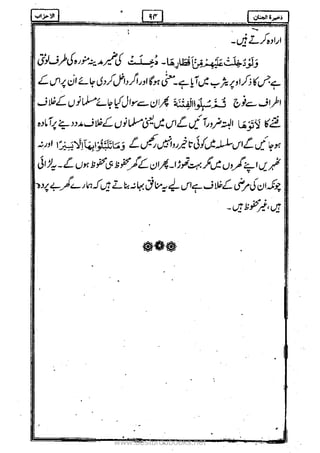 ذخیرۃ الجنان ۹۳ الاحزاب
ارادہ کرتے ہیں۔
وَلَوْ دُخِلَتْ عَلَيْهِمْ مِّنْ أَقْطَارِهَا۔ دُخِلَتْ کی ضمیر مدینہ منورہ کی طرف لوٹتی
ہے جس کا ذکر اوپر یثرب میں آیا ہے۔ معنی ہوگا اور اگر داخل کر دی جائے ان پر اس کے
اطراف سے فوج ثُمَّ سُئِلُوا الْفِتْنَةَ پھر ان سے سوال کیا جائے مسلمانوں کے خلاف
فتنے کا لَاٰتَوْهَا البتہ ضرور آئیں گے اس میں یعنی مسلمانوں کے خلاف مدد دینے پر آمادہ
ہو جائیں گے اس سلسلہ میں کوئی تاخیر روا نہیں رکھیں گے وَمَا تَلَبَّثُوا بِهَا إِلَّا يَسِيْرًا اور نہ
ٹھہریں اپنے گھروں میں مگر بہت تھوڑا۔ پھر ان کے گھر محفوظ ہی محفوظ ہوں گے۔ یہ لڑائی
چونکہ ان کی مرضی کے خلاف ہے اس لیے یہ منافق بہانہ بناتے ہیں کہ ہمارے گھر بے پردہ
ہیں، غیر محفوظ ہیں۔